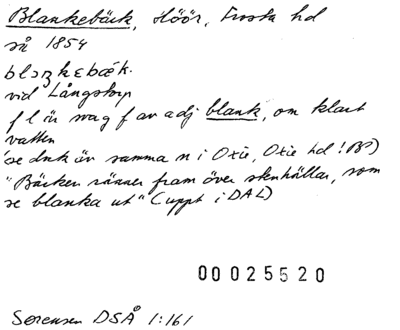 Blankebäck, Höör, Frosta hd
så 1854
blaŋkɛbæk.
vid Långstorp
f l är svag f av adj blank, om klart
vatten
(se dnk är samma n i Oxie, Oxie hd! BP)
"Bäcken ränner fram över stenhällar, som
se blanka ut" (uppt i DAL)
00025520
Sørensen DSÅ 1:161